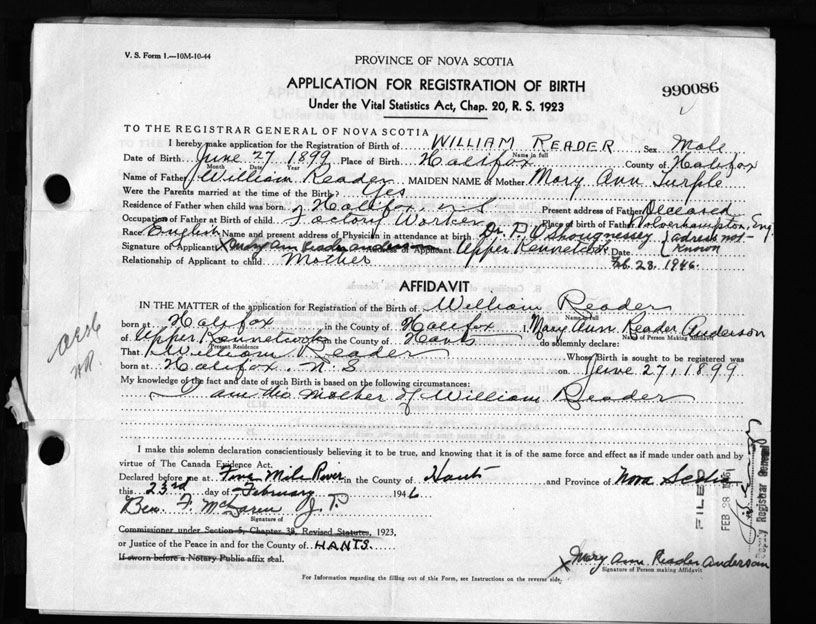 V. S. Form 1.—10M-10-44
PROVINCE OF NOVA SCOTIA
APPLICATION FOR REGISTRATION OF BIRTH
990086
Under the Vital Statistics Act, Chap. 20, R. S. 1923
TO THE REGISTRAR GENERAL OF NOVA SCOTIA
I hereby make application for the Registration of Birth of WILLIAM READER Sex Male
Name in full
Date of Birth June 27 1899 Place of Birth Halifax County of Halifax
Month Date Year
Name of Father William Reader MAIDEN NAME of Mother Mary Ann Turple
Were the Parents married at the time of the Birth? Yes
Residence of Father when child was born Halifax, N S Present address of Father Deceased
Occupation of Father at Birth of child Factory Worker Place of birth of Father Wolverhampton, Eng
Race English Name and present address of Physician in attendance at birth Dr. P. O'Shougnessey (adress not known
Signature of Applicant X Mary Ann Reader Anderson Address of Applicant Upper Kennetcook Date Feb. 23. 1946.
Relationship of Applicant to child Mother
AFFIDAVIT
IN THE MATTER of the application for Registration of the Birth of William Reader
Name in full
born at Halifax in the County of Halifax I, Mary Ann Reader Anderson
Name of Person Making Affidavit
of Upper Kennetcook in the County of Hants do solemnly declare:
Present Residence
That William Reader Whose Birth is sought to be registered was
born at Halifax. N S on June 27, 1899
My knowledge of the fact and date of such Birth is based on the following circumstances:
I am the Mother of William Reader
I make this solemn declaration conscientiously believing it to be true, and knowing that it is of the same force and effect as if made under oath and by
virtue of The Canada Evidence Act.
Declared before me at Five Mile River in the County of Hants and Province of Nova Scotia
this 23rd day of February 1946
Ben. F. McLaren J. P.
Signature of
Commissioner under Section 5, Chapter 38, Revised Statutes, 1923,
or Justice of the Peace in and for the County of HANTS.
If sworn before a Notary Public affix seal.
X Mary Ann Reader Anderson
Signature of Person making Affidavit
For Information regarding the filling out of this Form, see Instructions on the reverse side.
FILED
FEB 28
Deputy Registrar General